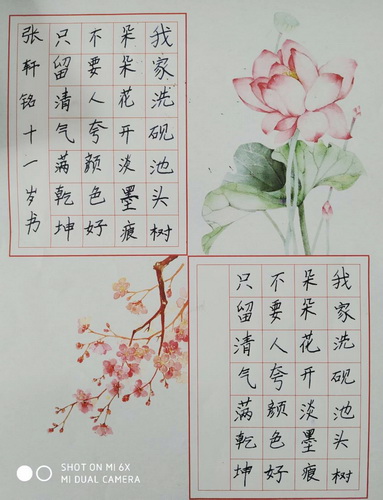 我家洗砚池头树
朵朵花开淡墨痕
不要人夸颜色好
只留清气满乾坤
张轩铭十一岁书
我家洗砚池头树
朵朵花开淡墨痕
不要人夸颜色好
只留清气满乾坤
SHOT ON MI 6X
MI DUAL CAMERA